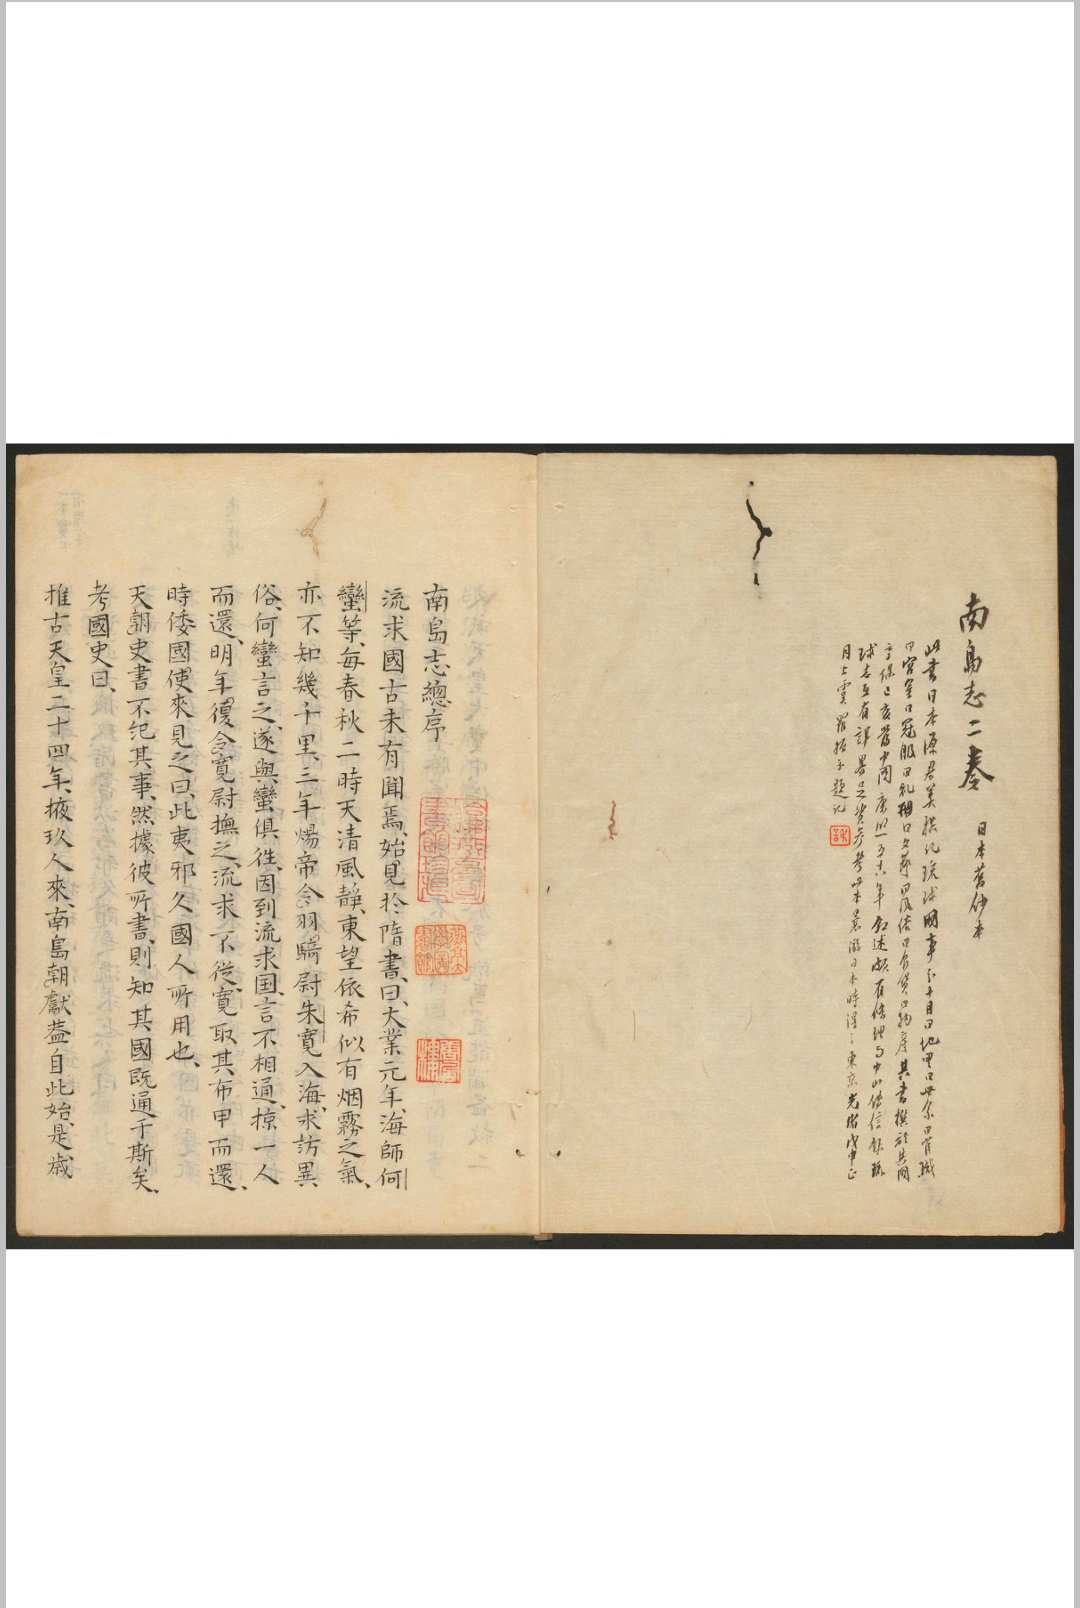 南島志二卷 日本舊鈔本
此書日本源君美撰记琉球國事分十目曰地理曰世系曰官職
曰宮室曰冠服曰禮刑曰文藝曰風俗曰食貨曰物産其書撰於其國
享保己亥當中國康熙五十八年叙述頗有條理与中山傳信錄琉
球志互有詳畧足資參考其本曩游日本時得之東京光緒戊申正
月上虞羅振玉題记
南島志總序
流求國古未有聞焉、始見於隋書、曰、大業元年、海師何
蠻等、每春秋二時天清風靜、東望依希似有烟霧之氣、
亦不知幾千里、三年煬帝令羽騎尉朱寛入海、求訪異
俗、何蠻言之、遂與蠻俱徃、因到流求国、言不相通、掠一人
而還、明年復令寛尉撫之、流求不從、寛取其布甲而還、
時倭國使來見之曰、此夷邪久國人所用也、
天朝史書不記其事、然據彼所書、則知其國既通于斯矣、
考國史曰、
推古天皇二十四年、掖玖人來、南島朝獻葢自此始、是歲